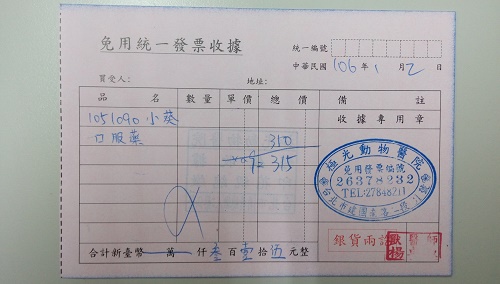 免用統一發票收據
統一編號
中華民國 106 年 1 月 2 日
買受人: 地址:
品 名 數量 單價 總價 備 註
1051090 小葵
口服藥
310
315
收據專用章
極光動物醫院
免用發票編號
26378232
TEL:27848211
台北市建國南路一段
銀貨兩訖
合計新臺幣 萬 仟 叁 百 壹 拾 伍 元整